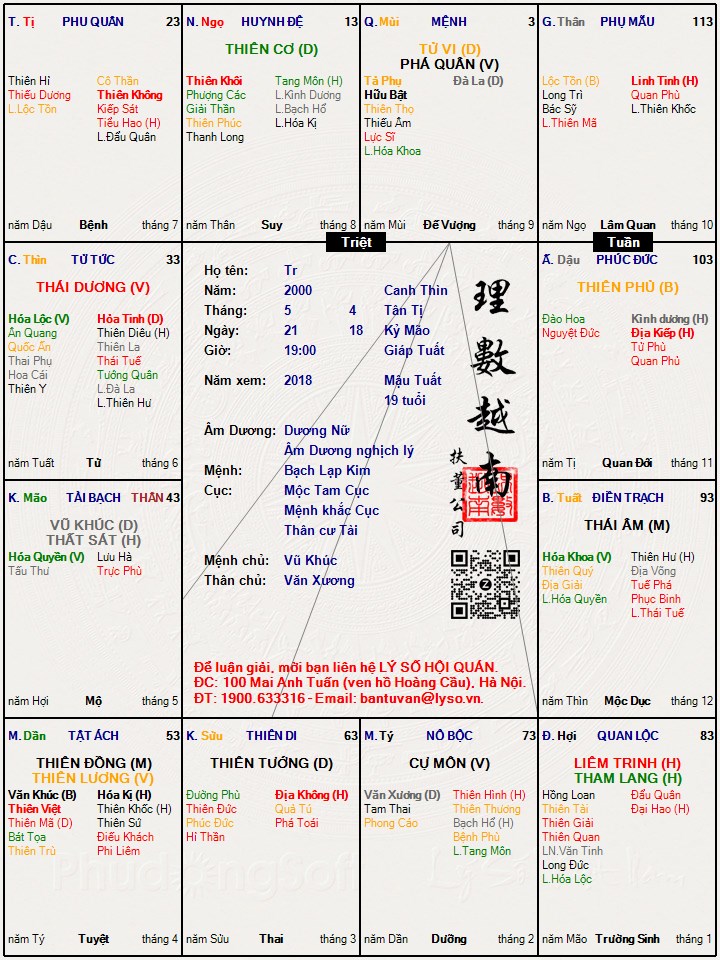 T. Tị PHU QUÂN 23
Thiên Hỉ
Thiếu Dương
L.Lộc Tồn
Cô Thần
Thiên Không
Kiếp Sát
Tiểu Hao (H)
L.Đẩu Quân
năm Dậu Bệnh tháng 7
N. Ngọ HUYNH ĐỆ 13
THIÊN CƠ (D)
Thiên Khôi
Phượng Các
Giải Thần
Thiên Phúc
Thanh Long
Tang Môn (H)
L.Kình Dương
L.Bạch Hổ
L.Hóa Kị
năm Thân Suy tháng 8
Q. Mùi MỆNH 3
TỬ VI (D)
PHÁ QUÂN (V)
Tả Phụ
Hữu Bật
Thiên Thọ
Thiếu Âm
Lực Sĩ
L.Hóa Khoa
Đà La (D)
năm Mùi Đế Vượng tháng 9
G. Thân PHỤ MẪU 113
Lộc Tồn (B)
Long Trì
Bác Sỹ
L.Thiên Mã
Linh Tinh (H)
Quan Phù
L.Thiên Khốc
năm Ngọ Lâm Quan tháng 10
Triệt
Tuần
C. Thìn TỬ TỨC 33
THÁI DƯƠNG (V)
Hóa Lộc (V)
Ân Quang
Quốc Ấn
Thai Phụ
Hoa Cái
Thiên Y
Hỏa Tinh (D)
Thiên Diêu (H)
Thiên La
Thái Tuế
Tướng Quân
L.Đà La
L.Thiên Hư
năm Tuất Tử tháng 6
Họ tên: Tr
Năm: 2000 Canh Thìn
Tháng: 5 4 Tân Tị
Ngày: 21 18 Kỷ Mão
Giờ: 19:00 Giáp Tuất
Năm xem: 2018 Mậu Tuất
19 tuổi
Âm Dương: Dương Nữ
Âm Dương nghịch lý
Mệnh: Bạch Lạp Kim
Cục: Mộc Tam Cục
Mệnh khắc Cục
Thân cư Tài
Mệnh chủ: Vũ Khúc
Thân chủ: Văn Xương
理數越南
扶董公司
Để luận giải, mời bạn liên hệ LÝ SỐ HỘI QUÁN.
ĐC: 100 Mai Anh Tuấn (ven hồ Hoàng Cầu), Hà Nội.
ĐT: 1900.633316 - Email: bantuvan@lyso.vn.
Ấ. Dậu PHÚC ĐỨC 103
THIÊN PHỦ (B)
Đào Hoa
Nguyệt Đức
Kình dương (H)
Địa Kiếp (H)
Tử Phù
Quán Phủ
năm Tị Quan Đới tháng 11
K. Mão TÀI BẠCH THÂN 43
VŨ KHÚC (D)
THẤT SÁT (H)
Hóa Quyền (V)
Tấu Thư
Lưu Hà
Trực Phù
năm Hợi Mộ tháng 5
B. Tuất ĐIỀN TRẠCH 93
THÁI ÂM (M)
Hóa Khoa (V)
Thiên Quý
Địa Giải
L.Hóa Quyền
Thiên Hư (H)
Địa Võng
Tuế Phá
Phục Binh
L.Thái Tuế
năm Thìn Mộc Dục tháng 12
M. Dần TẬT ÁCH 53
THIÊN ĐỒNG (M)
THIÊN LƯƠNG (V)
Văn Khúc (B)
Thiên Việt
Thiên Mã (D)
Bát Tọa
Thiên Trù
Hóa Kị (H)
Thiên Khốc (H)
Thiên Sứ
Điếu Khách
Phi Liêm
năm Tý Tuyệt tháng 4
K. Sửu THIÊN DI 63
THIÊN TƯỚNG (D)
Đường Phù
Thiên Đức
Phúc Đức
Hỉ Thần
Địa Không (H)
Quả Tú
Phá Toái
năm Sửu Thai tháng 3
M. Tý NÔ BỘC 73
CỰ MÔN (V)
Văn Xương (D)
Tam Thai
Phong Cáo
Thiên Hình (H)
Thiên Thương
Bạch Hổ (H)
Bệnh Phù
L.Tang Môn
năm Dần Dưỡng tháng 2
Đ. Hợi QUAN LỘC 83
LIÊM TRINH (H)
THAM LANG (H)
Hồng Loan
Thiên Tài
Thiên Giải
Thiên Quan
LN.Văn Tinh
Long Đức
L.Hóa Lộc
Đẩu Quân
Đại Hao (H)
năm Mão Trường Sinh tháng 1